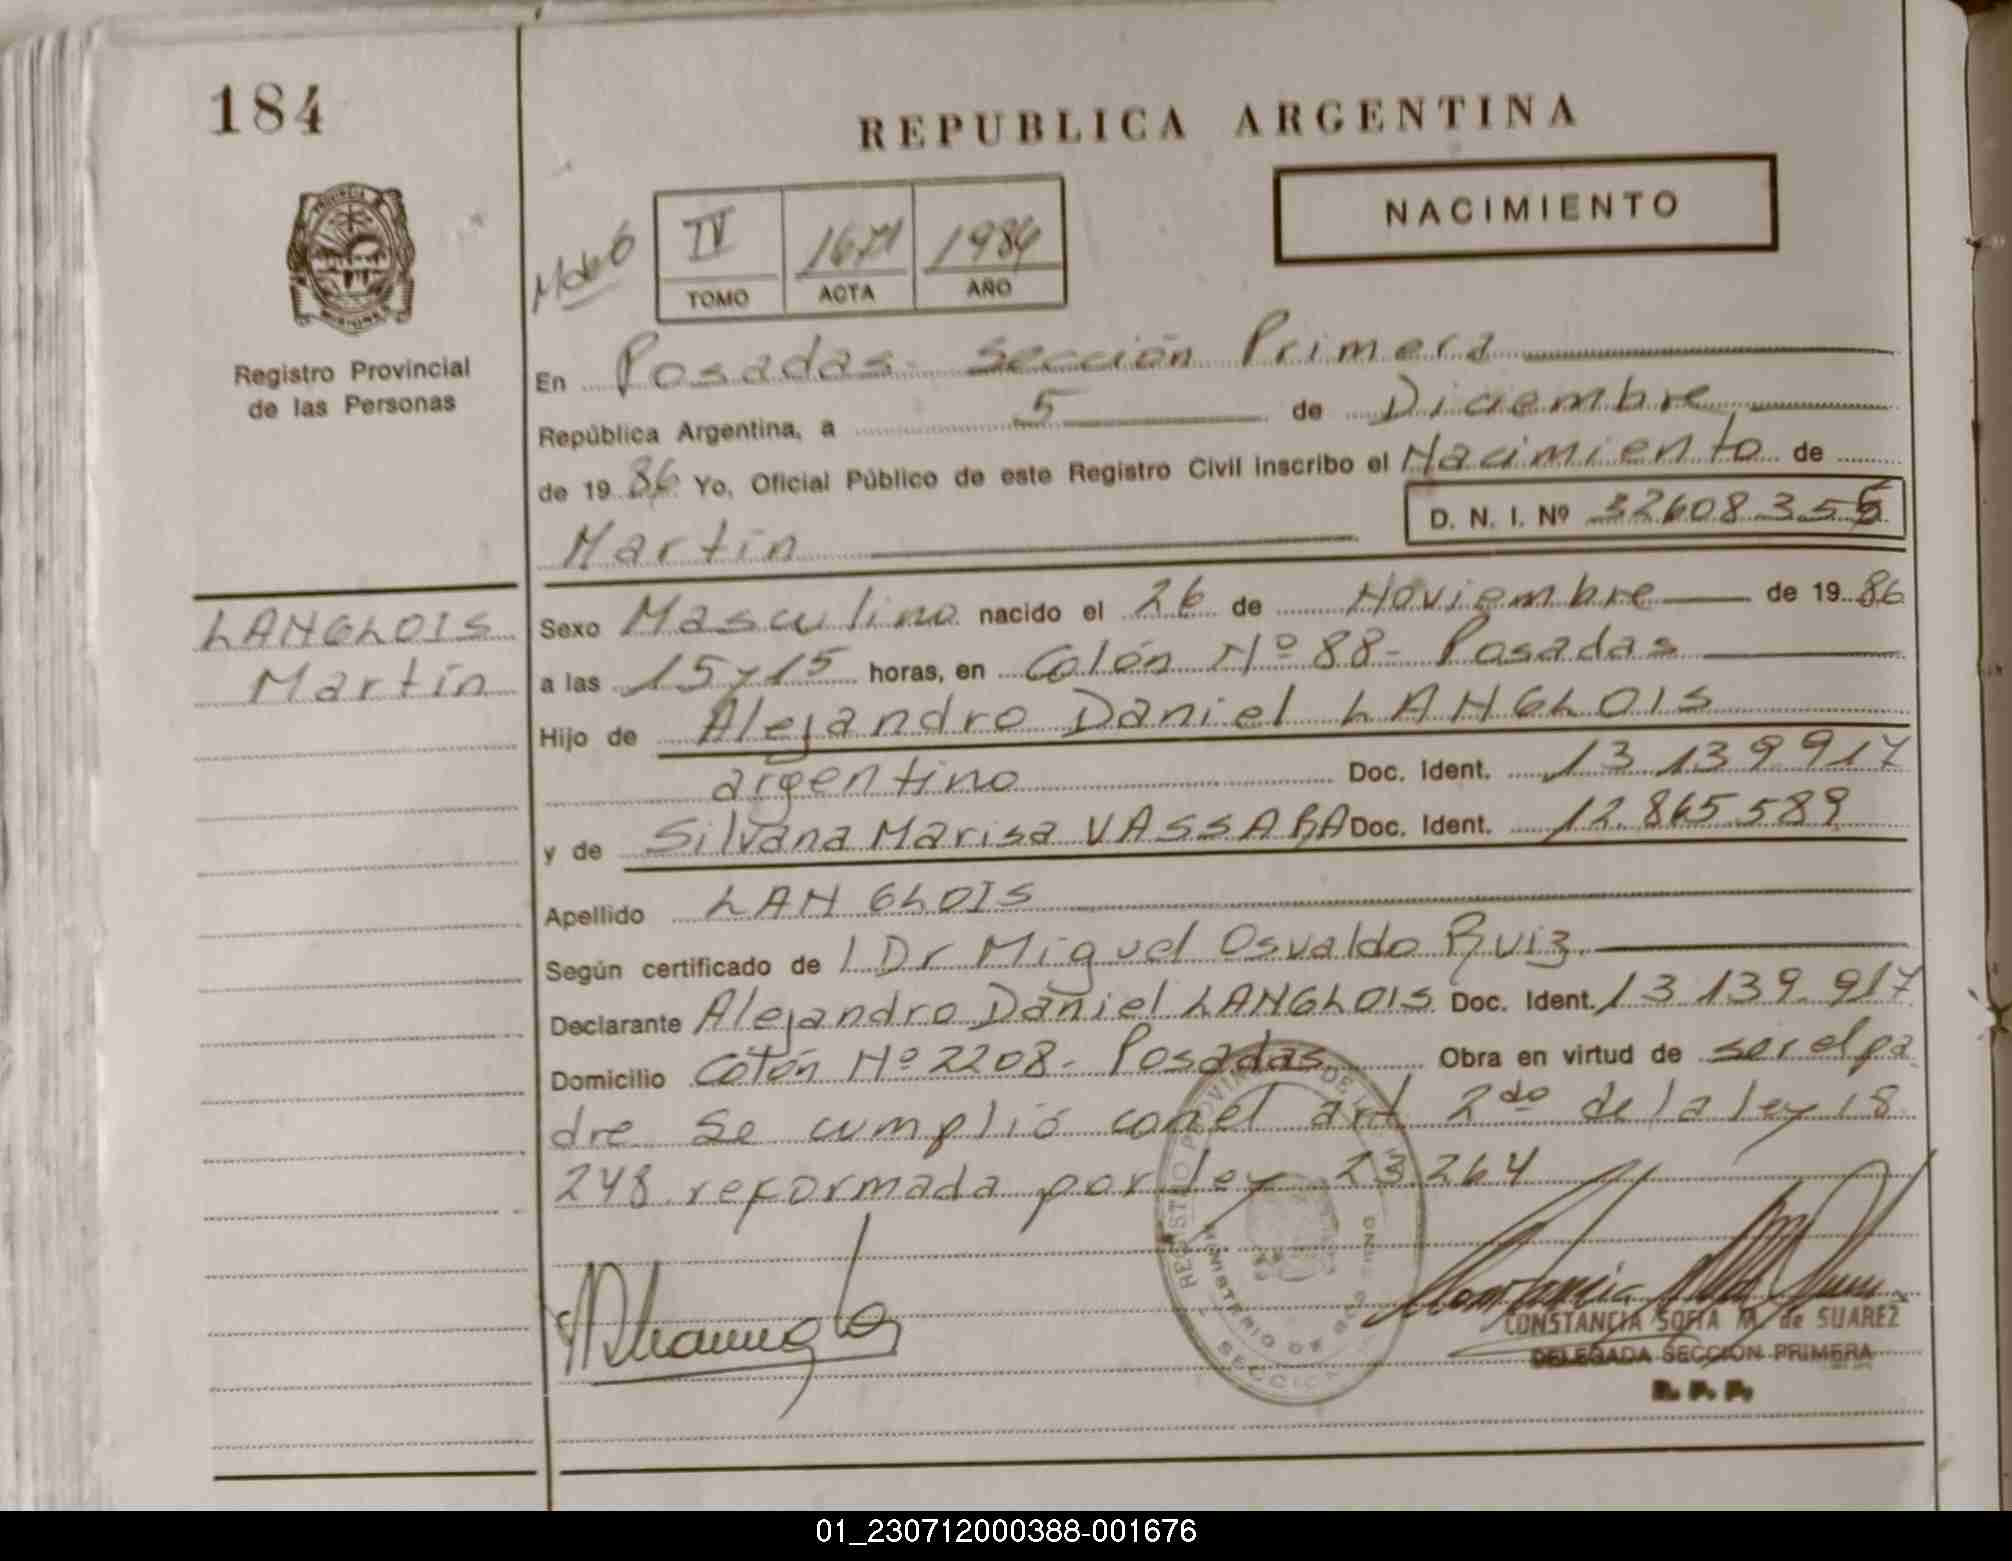 184
REPUBLICA ARGENTINA
NACIMIENTO
IV 1671 1986
TOMO ACTA AÑO
Registro Provincial
de las Personas
En Posadas - Sección Primera
República Argentina, a 5 de Diciembre
de 1986 Yo, Oficial Público de este Registro Civil inscribo el Nacimiento de
D. N. I. Nº 32608355
Martín
LANGLOIS
Martín
Sexo Masculino nacido el 26 de Noviembre de 1986
a las 15 y 15 horas, en Colón Nº 88 - Posadas
Hijo de Alejandro Daniel LANGLOIS
argentino Doc. Ident. 13.139.917
y de Silvana Marisa VASSARA Doc. Ident. 12.865.589
Apellido LANGLOIS
Según certificado de l Dr Miguel Osvaldo Ruiz
Declarante Alejandro Daniel LANGLOIS Doc. Ident. 13.139.917
Domicilio Colón Nº 2208 - Posadas Obra en virtud de ser el pa
dre Se cumplió con el art 2do de la ley 18
248 reformada por ley 23.264
CONSTANCIA SOFIA M. de SUAREZ
DELEGADA SECCION PRIMERA
R. P. P.
01_230712000388-001676